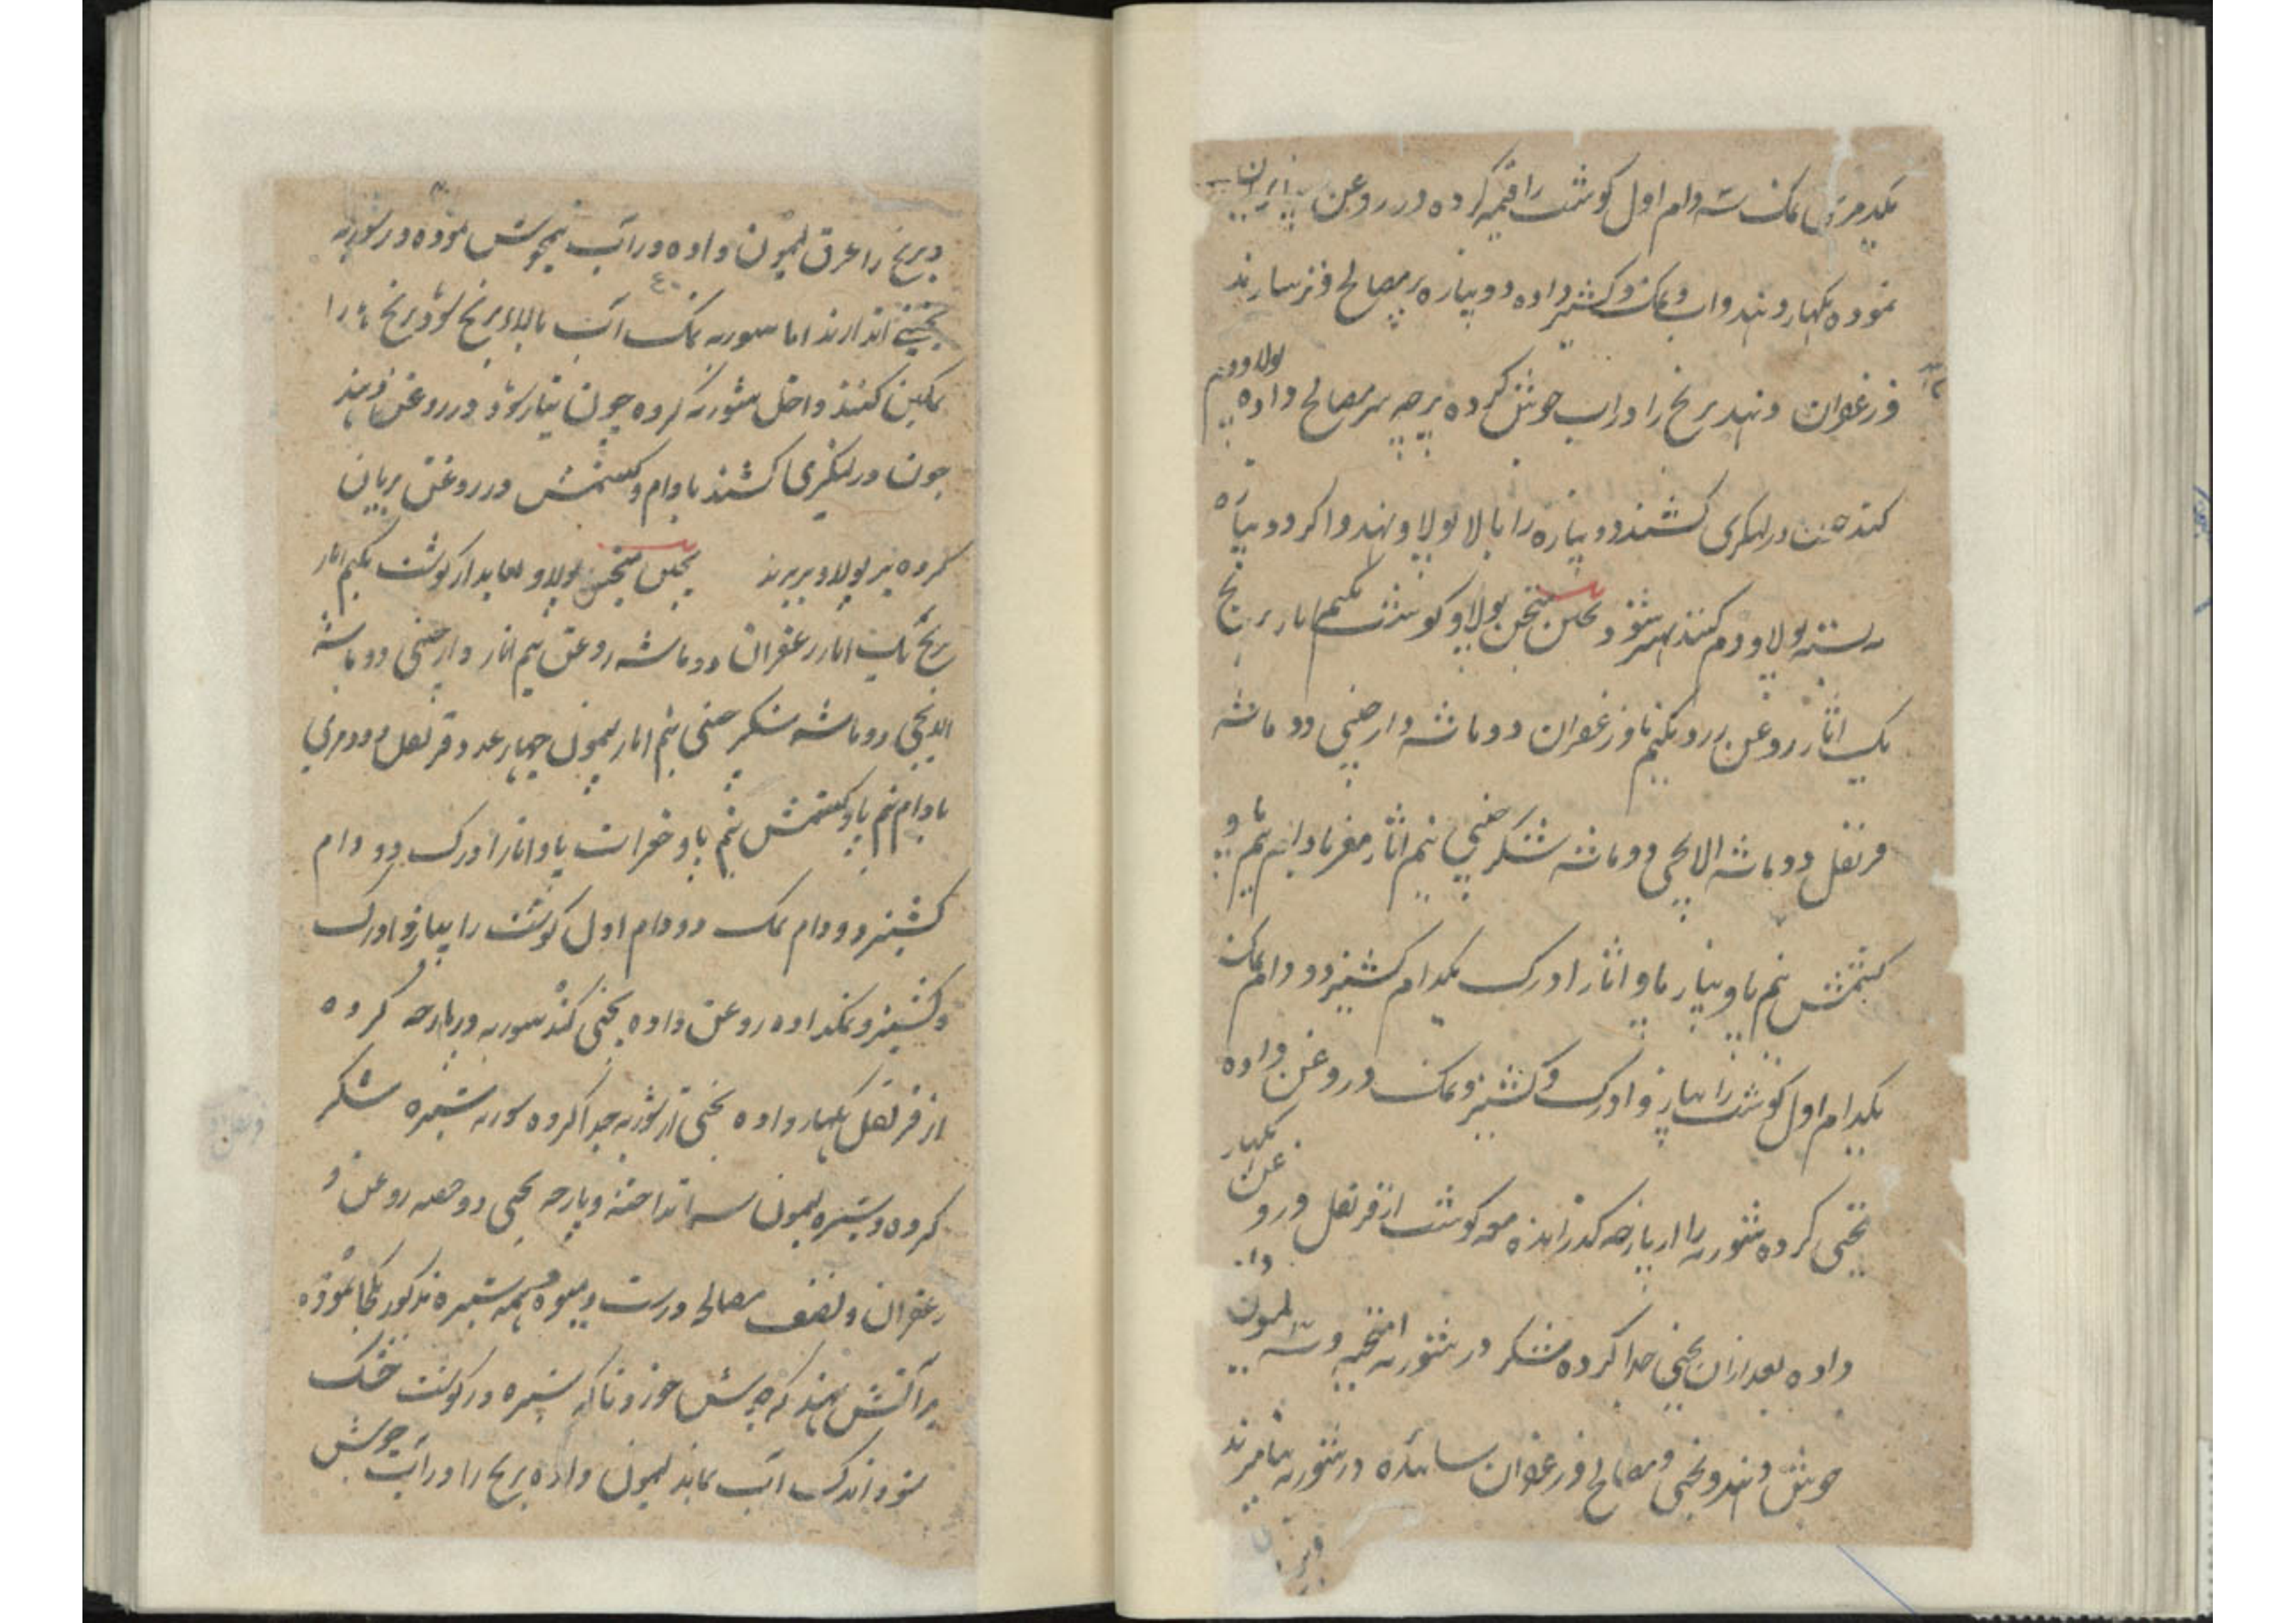 نمک سه دام اول گوشت را قیمه کرده در روغن بریان
نموده بگهار دهند و آب و نمک و کشنیز داده دوپیازه پز مصالح و زعفران سازند
و زعفران دهند برنج را در آب جوش کرده پرچه سر مصالح داده پولاو دم
کنند در لنگری کشند دوپیازه را بالا پولاو نهند و اگر دوپیازه
پولاو دم کنند بهتر شود متنجن پولاو گوشت یکنیم اثار برنج
یک اثار روغن زرد نیم پاو زعفران دو ماشه دارچینی دو ماشه
قرنفل دو ماشه الایچی دو ماشه شکر چینی نیم اثار مغز بادام نیم پاو
کشمش نیم پاو پیاز پاو اثار ادرک یکدام کشنیز دو دام نمک
یکدام اول گوشت را پیاز و ادرک و کشنیز و نمک و روغن داده
یخنی کرده شوربه را از پارچه گذرانده معه گوشت از قرنفل و روغن بگهار
داده بعد ازان یخنی جدا کرده شکر در شوربه آمیخته لیمون
جوش دهند و یخنی و مصالح و زعفران سائیده در شوربه
و برنج را عرق لیمون داده در آب نیمجوش نموده در شوربه
یخنی اندازند اما شوربه نمک آب بالای برنج شود برنج را
نمکین کنند داخل شوربه کرده چون تیار شود روغن دهند
چون در لنگری کشند بادام و کشمش در روغن بریان
کرده بر پولاو بریزند متنجن پولاو لعابدار گوشت یکنیم اثار
برنج یک اثار زعفران دو ماشه روغن نیم اثار دارچینی دو ماشه
الایچی دو ماشه شکر چینی نیم اثار لیمون چهار عدد قرنفل دو درمی
بادام نیم پاو کشمش نیم پاو پاو اثار ادرک دو دام
کشنیز دو دام نمک دو دام اول گوشت را پیاز و ادرک
و کشنیز و نمک داده روغن داده یخنی کنند شوربه در پارچه کرده
از قرنفل بگهار داده یخنی از شوربه جدا کرده شوربه شیره شکر
کرده و شیره لیمون انداخته و پارچه یخنی دو حصه روغن و
زعفران و نصف مصالح درست و میوه همه شیره مذکور یکجا نموده
بر آتش نهند که جوش خورد تا که شیره در گوشت خشک
شود اندک آب بماند لیمون داده برنج را در آب جوش